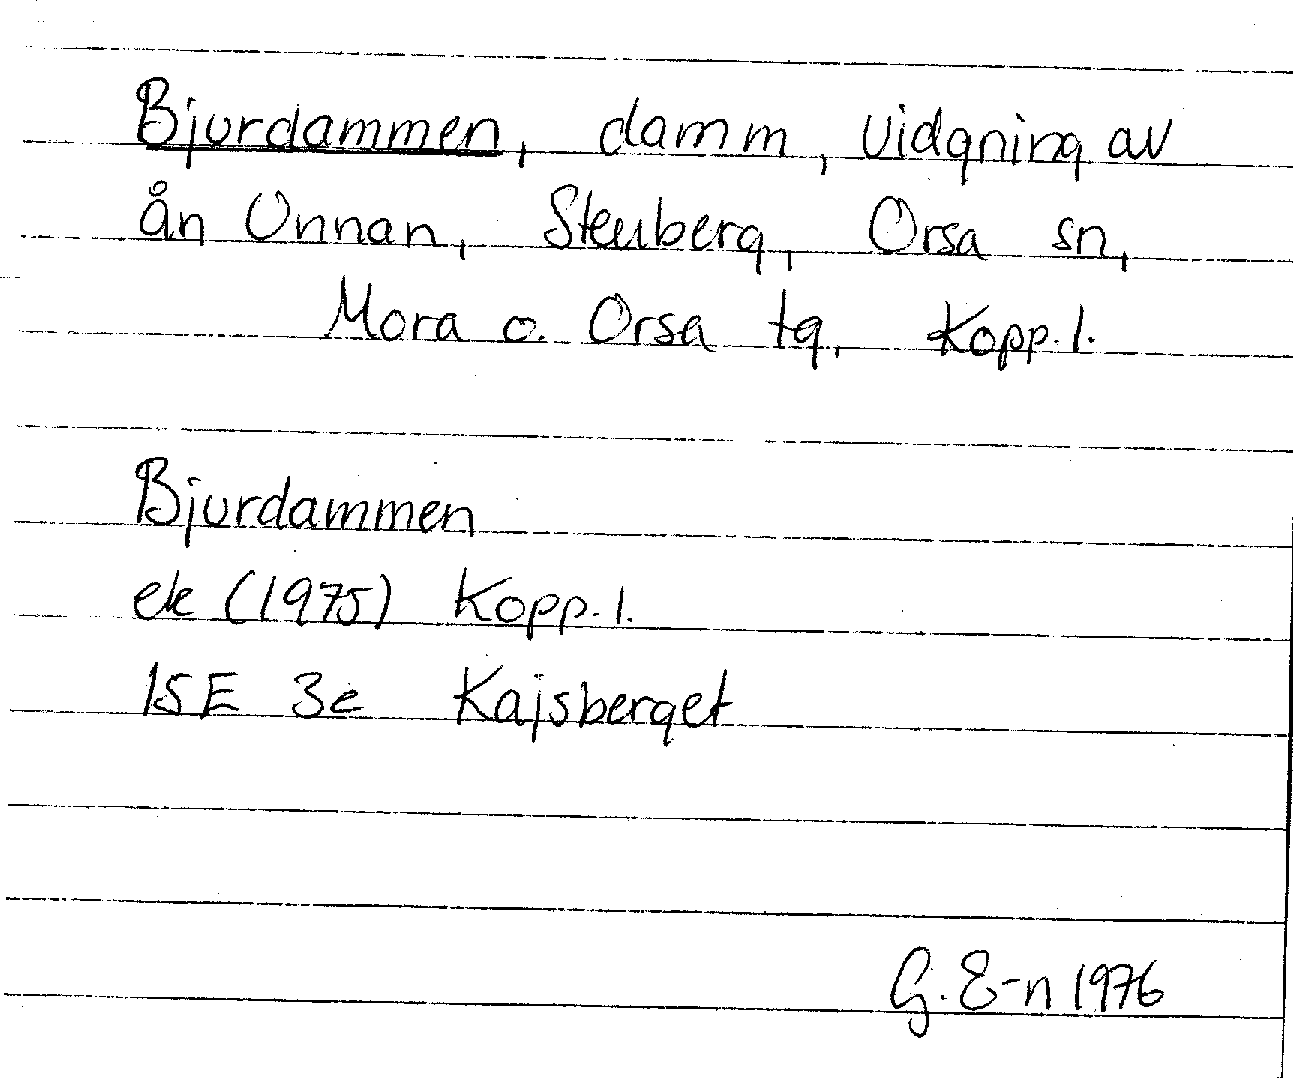 Bjurdammen, damm, vidgning av
ån Unnan, Steuberg, Orsa sn,
Mora o. Orsa tg, Kopp. l.
Bjurdammen
ek (1975) Kopp. l.
15E 3e Kajsberget
G. E-n 1976